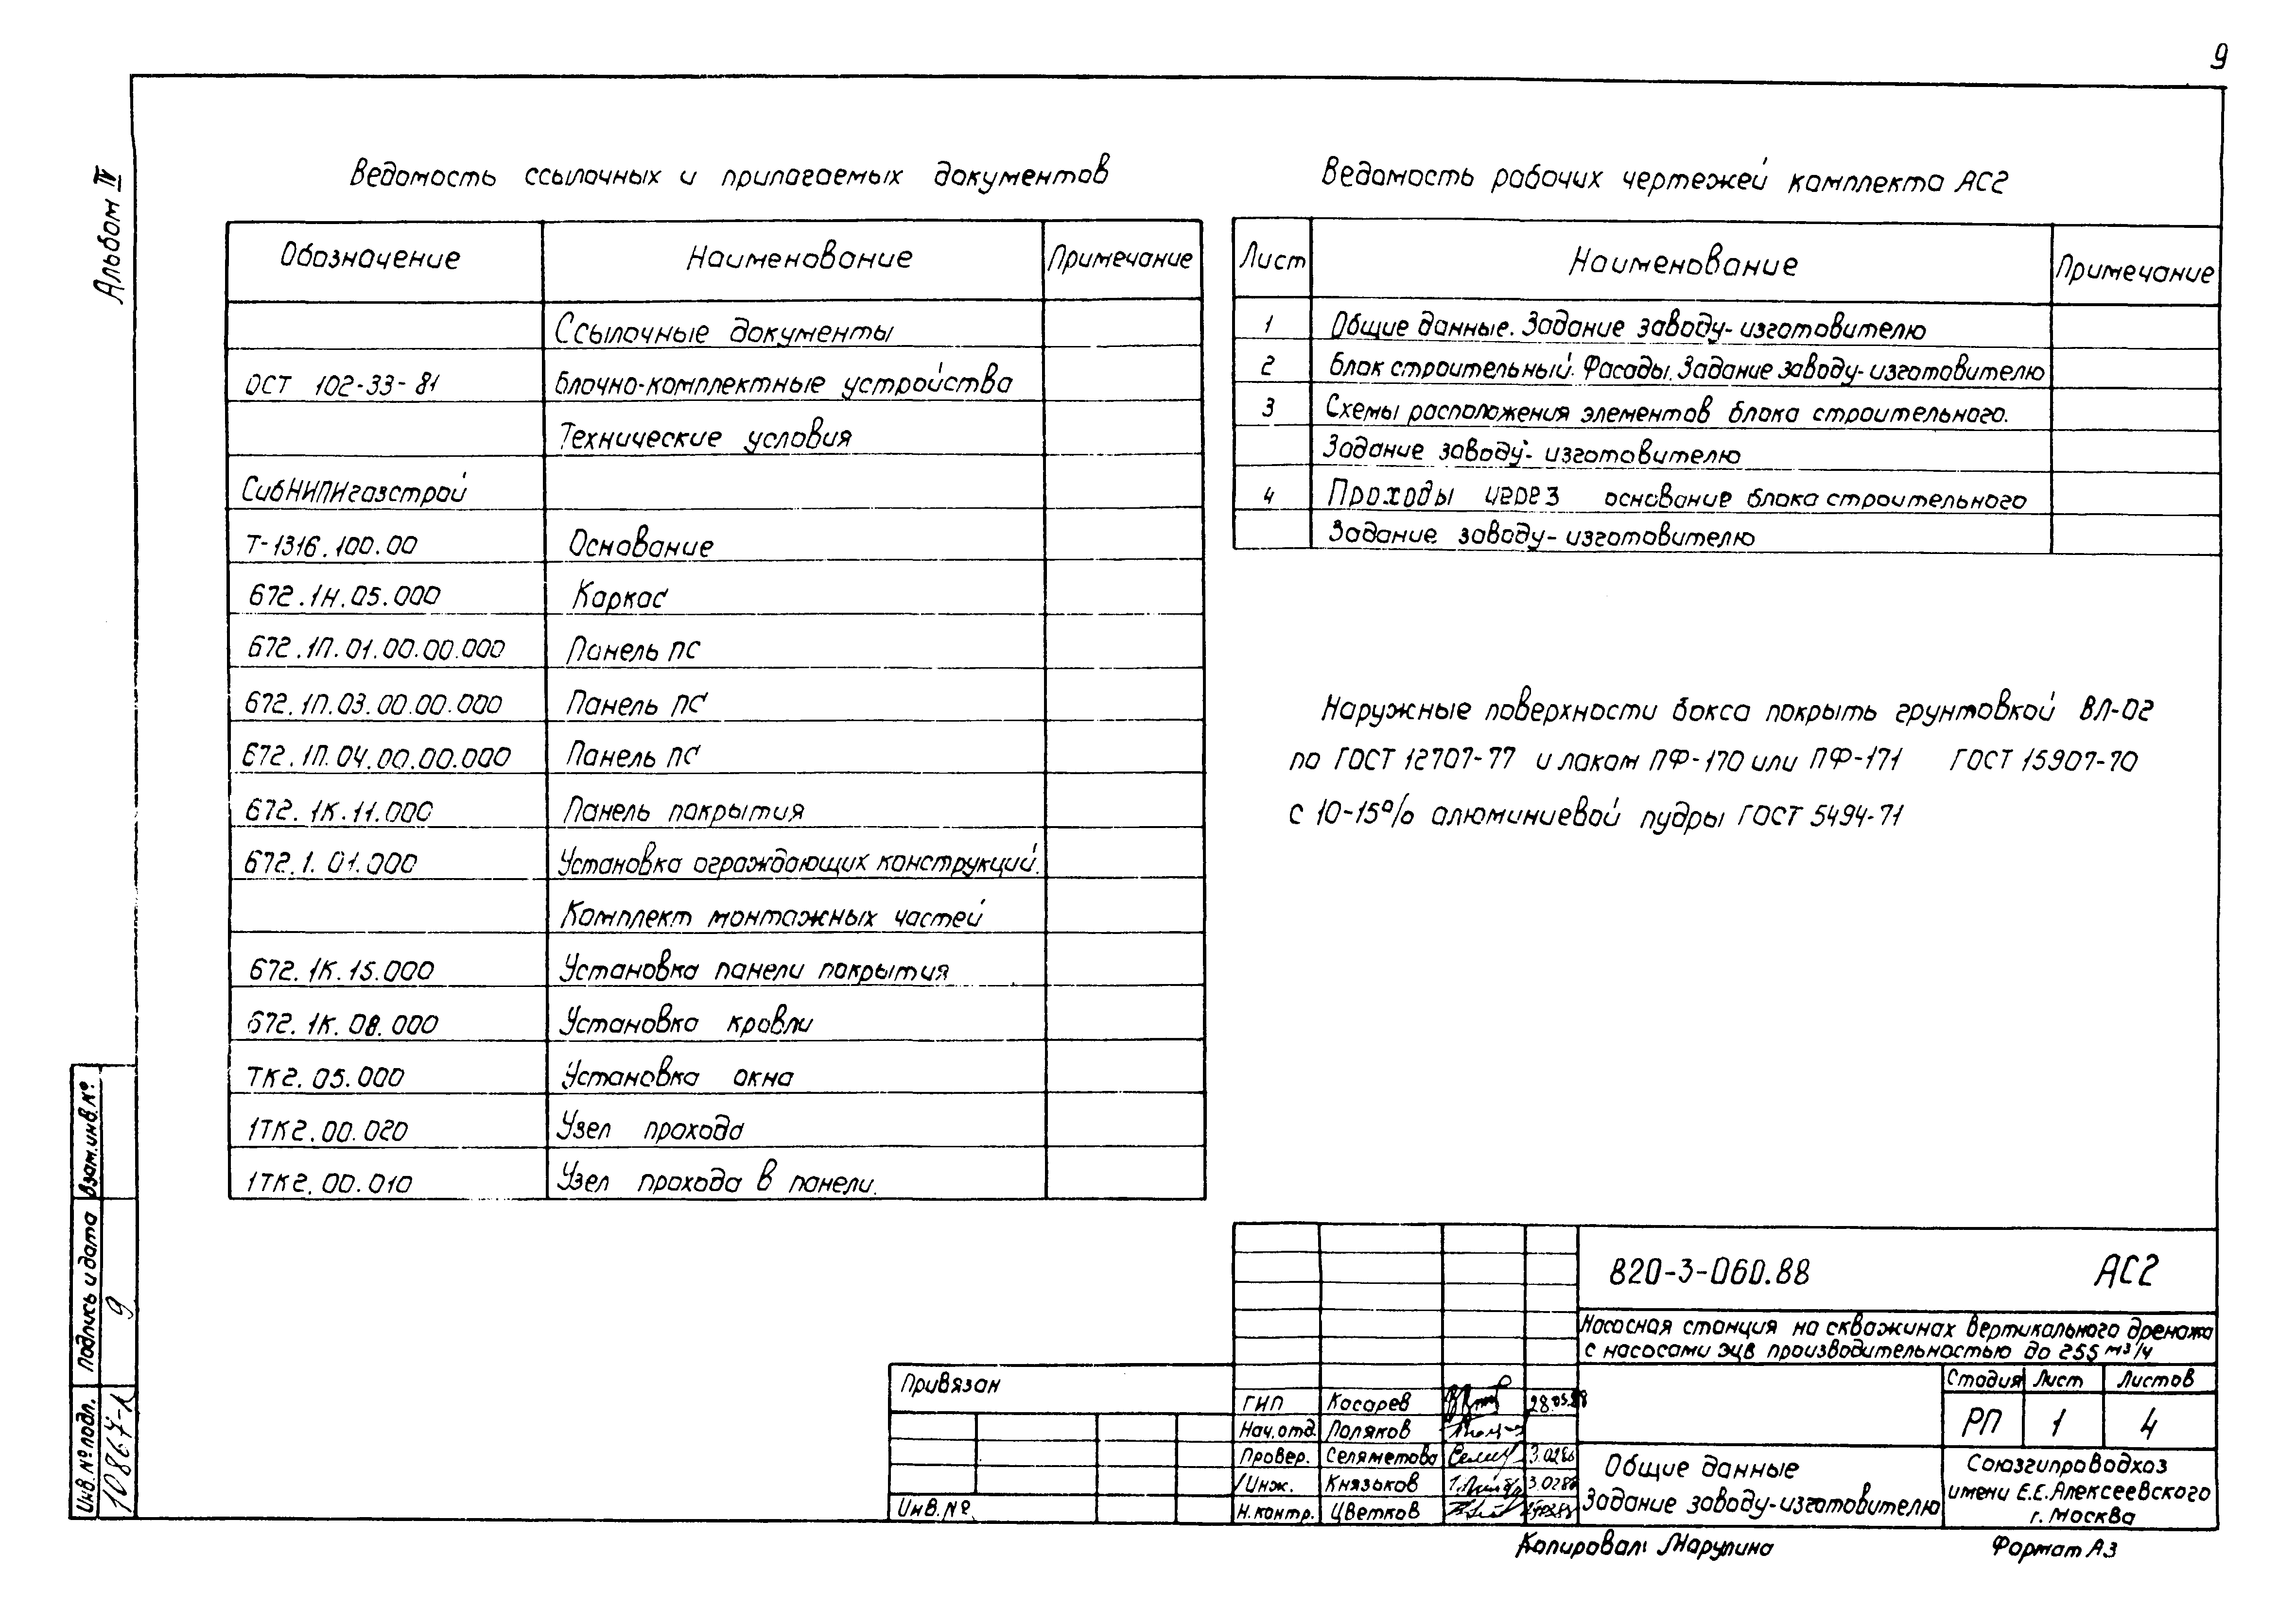 9
Альбом IV
Ведомость ссылочных и прилагаемых документов
Обозначение Наименование Примечание
Ссылочные документы
ОСТ 102-33-81 Блочно-комплектные устройства
Технические условия
СибНИПИгазстрой
Т-1316.100.00 Основание
672.1Н.05.000 Каркас
672.1П.01.00.00.000 Панель ПС
672.1П.03.00.00.000 Панель ПС
672.1П.04.00.00.000 Панель ПС
672.1К.11.000 Панель покрытия
672.1.01.000 Установка ограждающих конструкций.
Комплект монтажных частей
672.1К.15.000 Установка панели покрытия
672.1К.08.000 Установка кровли
ТК2.05.000 Установка окна
1ТК2.00.020 Узел прохода
1ТК2.00.010 Узел прохода в панели.
Ведомость рабочих чертежей комплекта АС2
Лист Наименование Примечание
1 Общие данные. Задание заводу-изготовителю
2 Блок строительный. Фасады. Задание заводу-изготовителю
3 Схемы расположения элементов блока строительного.
Задание заводу-изготовителю
4 Проходы через основание блока строительного
Задание заводу-изготовителю
Наружные поверхности бокса покрыть грунтовкой ВЛ-02
по ГОСТ 12707-77 и лаком ПФ-170 или ПФ-171 ГОСТ 15907-70
с 10-15% алюминиевой пудры ГОСТ 5494-71
820-3-060.88 АС2
Насосная станция на скважинах вертикального дренажа
с насосами ЭЦВ производительностью до 255 м³/ч
Стадия Лист Листов
РП 1 4
Общие данные
Задание заводу-изготовителю
Союзгипроводхоз
имени Е.Е.Алексеевского
г. Москва
ГИП Косарев
Нач.отд. Поляков
Провер. Селяметова
Инж. Князьков
Н.контр. Цветков
Привязан
Инв.№
Копировал: Марупина
Формат А3
Взам.инв.№
Подпись и дата
9
Инв.№подл.